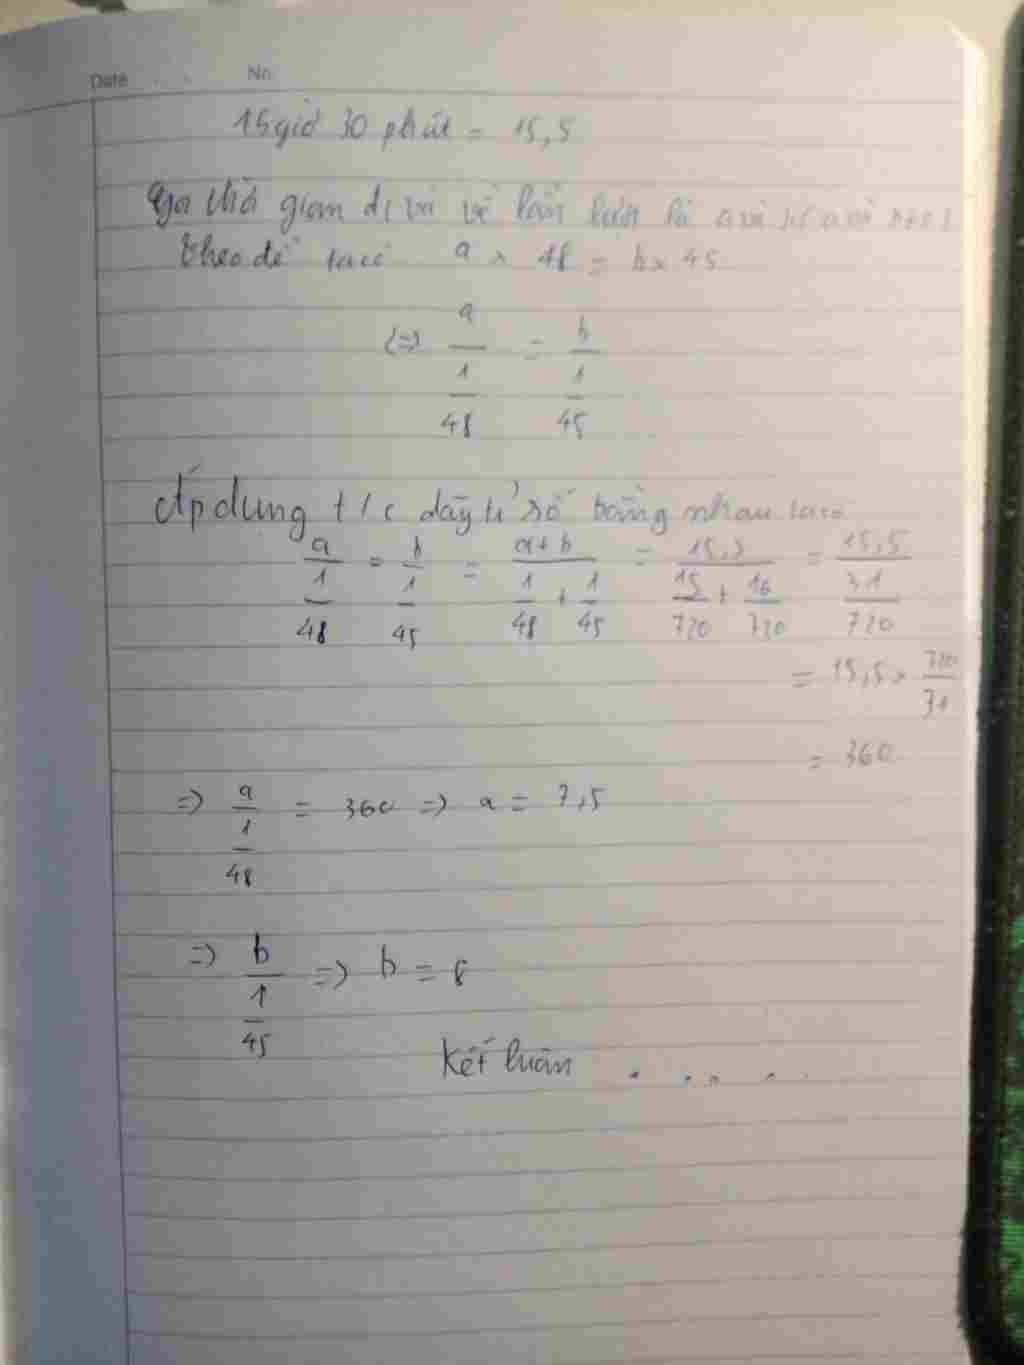 Date No
15 giờ 30 phút = 15,5
Gọi thời gian đi và về lần lượt là a và b
theo đề ta có a × 48 = b × 45
<=> a/(1/48) = b/(1/45)
Áp dụng t/c dãy tỉ số bằng nhau ta có
a/(1/48) = b/(1/45) = (a+b)/(1/48 + 1/45) = 15,5/(15/720 + 16/720) = 15,5/(31/720)
= 15,5 × 720/31
= 360
=> a/(1/48) = 360 => a = 7,5
=> b/(1/45) => b = 8
Kết luận . . . . .